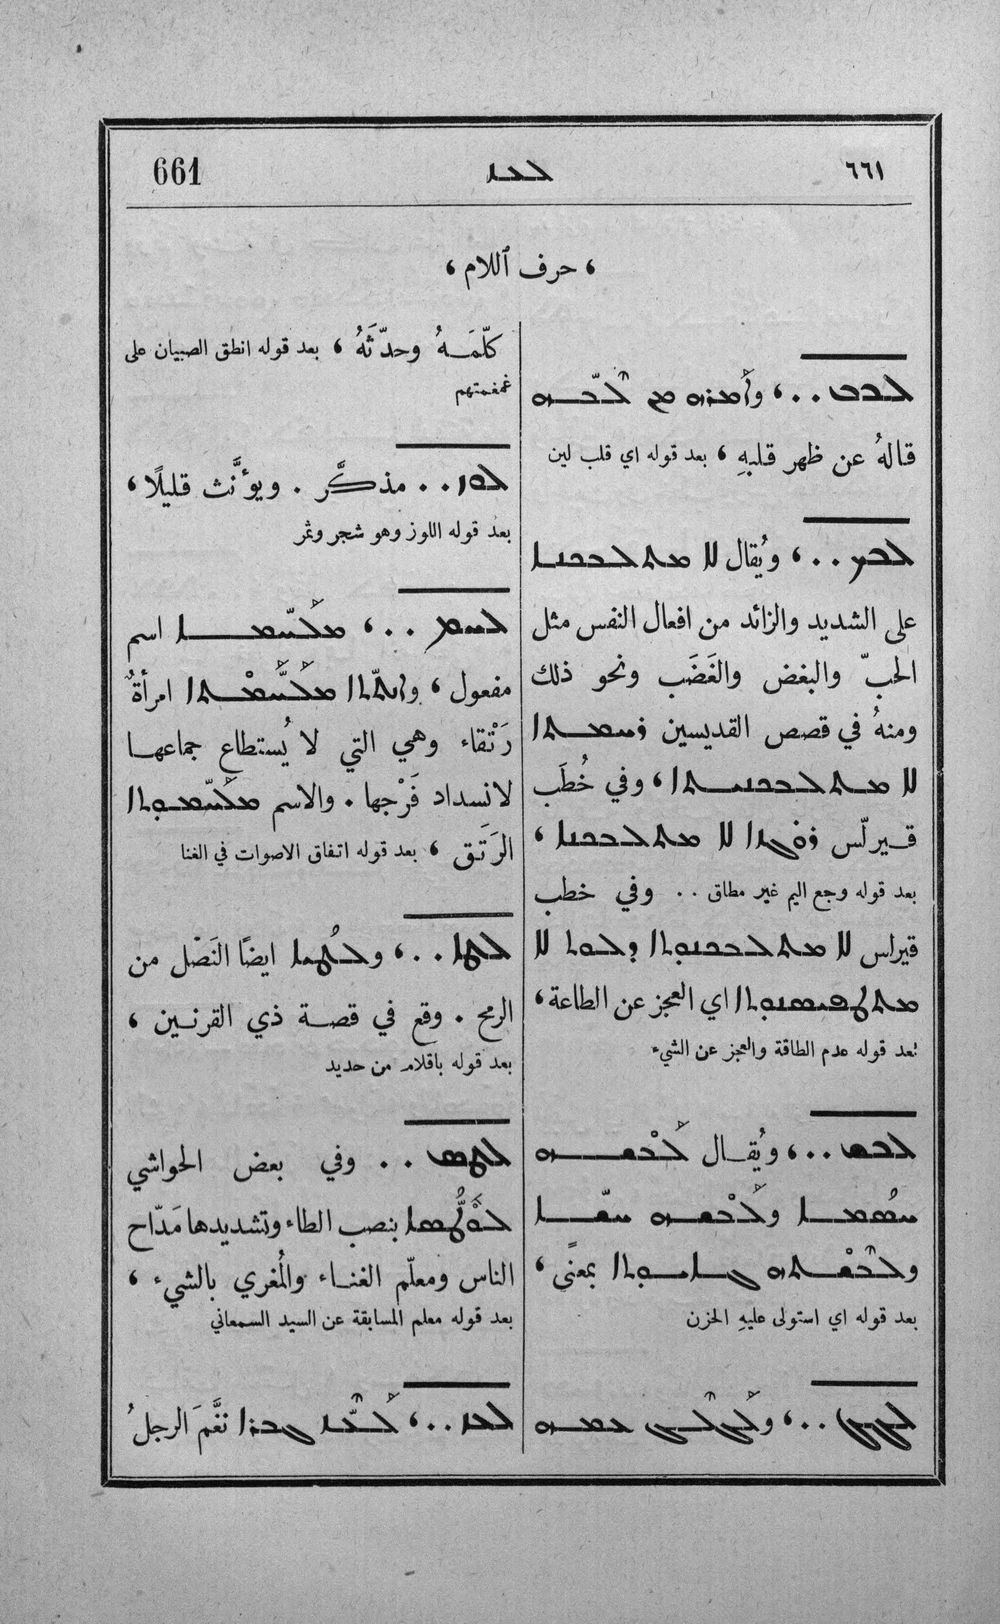 661 ܠܥܐ ٦٦١
، حرف ٱللام ،
ܠܒܒ . . ، ܘܐܡܪܗ ܡܢ ܠܒܗ
قالهُ عن ظهر قلبهِ ، بعد قوله اي قلب لين
ܠܒܟ . . ، ويُقال ܠܐ ܡܬܠܒܟܢܐ
على الشديد والزائد من افعال النفس مثل
الحبّ والبغض والغَضَب ونحو ذلك
ومنهُ في قصص القديسين ܪܚܡܬܐ
ܠܐ ܡܬܠܒܟܢܝܬܐ ، وفي خُطَب
قيرلّس ܪܘܓܙܐ ܠܐ ܡܬܠܒܟܢܐ ،
بعد قوله وجع اليم غير مطاق . . وفي خطب
قيرلس ܠܐ ܡܬܠܒܟܢܘܬܐ ܕܠܘܬ ܠܐ
اي العجز عن الطاعة ،
بعد قوله عدم الطاقة والعجز عن الشيء
ܠܒܫ . . ، ويُقال ܠܒܫܗ
ܚܣܡܐ ܘܠܒܫܗ ܚܫܐ
ܘܠܒܫܬܗ بمعنًى ،
بعد قوله اي استولى عليهِ الحزن
ܠܓܠܓ . . ،
كلّمَهُ وحدّثَهُ ، بعد قوله انطق الصبيان على
غمغمتهم
ܠܘܙ . . مذكَّر . ويؤنَّث قليلًا ،
بعد قوله اللوز وهو شجر وثمر
ܠܚܡ . . ، ܡܠܚܡܐ اسم
مفعول ، ܘܐܢܬܬܐ ܡܠܚܡܬܐ امرأةٌ
رَتْقاء وهي التي لا يُستطاع جماعها
لانسداد فَرْجها . والاسم ܡܠܚܡܘܬܐ
الرَتَق ، بعد قوله اتفاق الاصوات في الغنا
ܠܛܐ . . ، ايضًا النَصْل من
الرمح . وقع في قصة ذي القرنين ،
بعد قوله باقلام من حديد
ܠܛܫ . . وفي بعض الحواشي
ܠܛܘܫܐ بنصب الطاء وتشديدها مَدّاح
الناس ومعلّم الغناء والمُغري بالشيء ،
بعد قوله معلم المسابقة عن السيد السمعاني
ܠܥܐ . . ، ܠܥܝ ܓܒܪܐ نغَّمَ الرجلُ